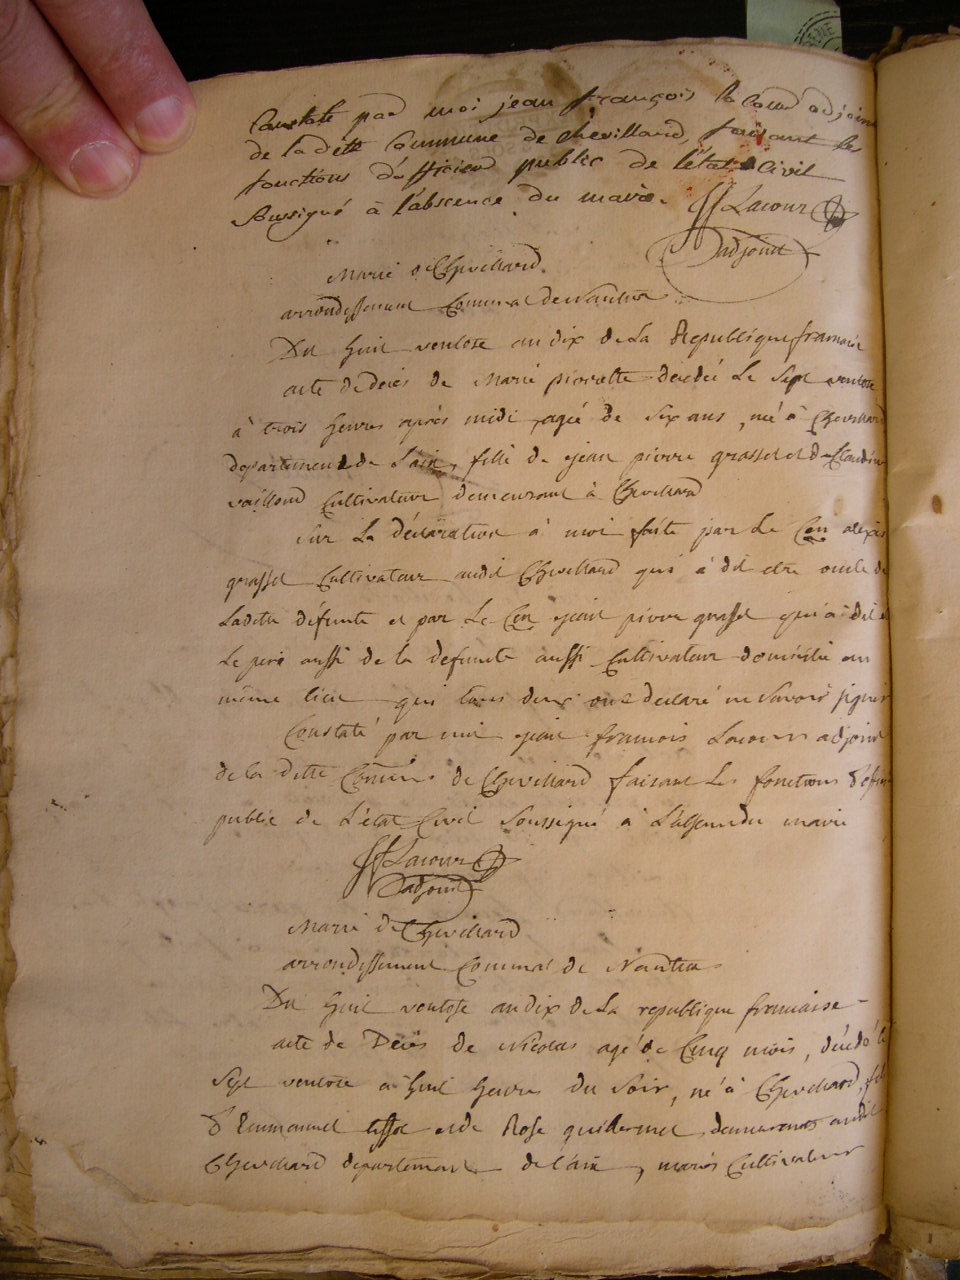 Constaté par moi jean françois la Cour adjoin
de ladette Commune de Chevillard, faisant les
fonctions d'officier public de l'état Civil
soussigné à l'abscence du maire. JfLacour
adjoint
Marie de Chevillard
arrondissement Communal de Nantua
Du huit ventose an dix de La Republique francaise
acte de deces de Marie pierrette decedée Le Sept ventose
à trois heures après midi, agée de six ans, née à Chevillard
departement de L'ain, fille de jean pierre grasset et de Claudine
vailloud Cultivateur demeurant à Chevillard
Sur La déclaration à moi faite par Le Cen alexis
grasset Cultivateur audit Chevillard qui à dit etre oncle de
Ladette défunte et par Le Cen jean pierre grasset qui à dit
Le pere aussi de la defunte aussi Cultivateur domicilié au
même lieu qui tous deux ont declaré ne savoir signer
Constaté par moi jean francois Lacour adjoint
de la dette Comune de Chevillard faisant Les fonctions d'offici
public de L'état Civil Soussigné à L'absence du maire
JfLacour
adjoint
Marie de Chevillard
arrondissement Communal de Nantua
Du huit ventose an dix de La republique francaise
acte de Decès de Nicolas agé de Cinq mois, décédé le
Sept ventose a huit heures du soir, né à Chevillard, fils
d'Emmanuel tissot et de Rose guillermet demeurants audit
Chevillard departement de l'ain, mariés Cultivateurs